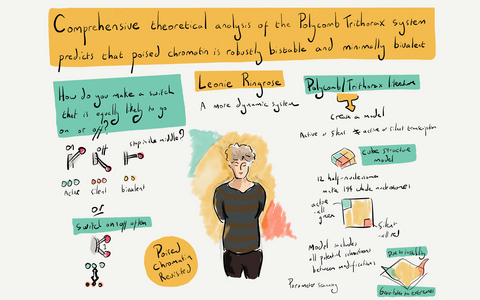 Comprehensive theoretical analysis of the Polycomb Trithorax system
predicts that poised chromatin is robustly bistable and minimally bivalent
How do you make a switch
that is equally likely to go
on or off?
stop in the middle?
Active Silent bivalent
or
switch on/off often
Leonie Ringrose
A more dynamic system
Poised
Chromatin
Revisited
Polycomb/Trithorax literature
Create a model
Active or Silent ≠ active or silent transcription
cube structure
model
12 half-nucleosomes
make 144 whole nucleosomes
active
all
green
Silent
all red
Model includes
all potential interactions
between modifications
Parameter scanning